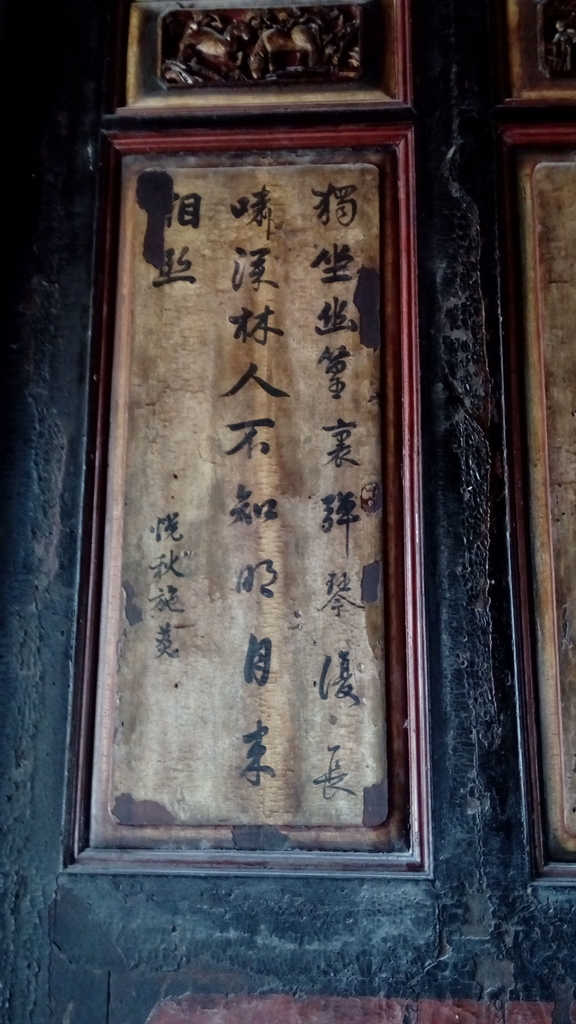 獨坐幽篁裏彈琴復長
嘯深林人不知明月来
相照
悦秋施